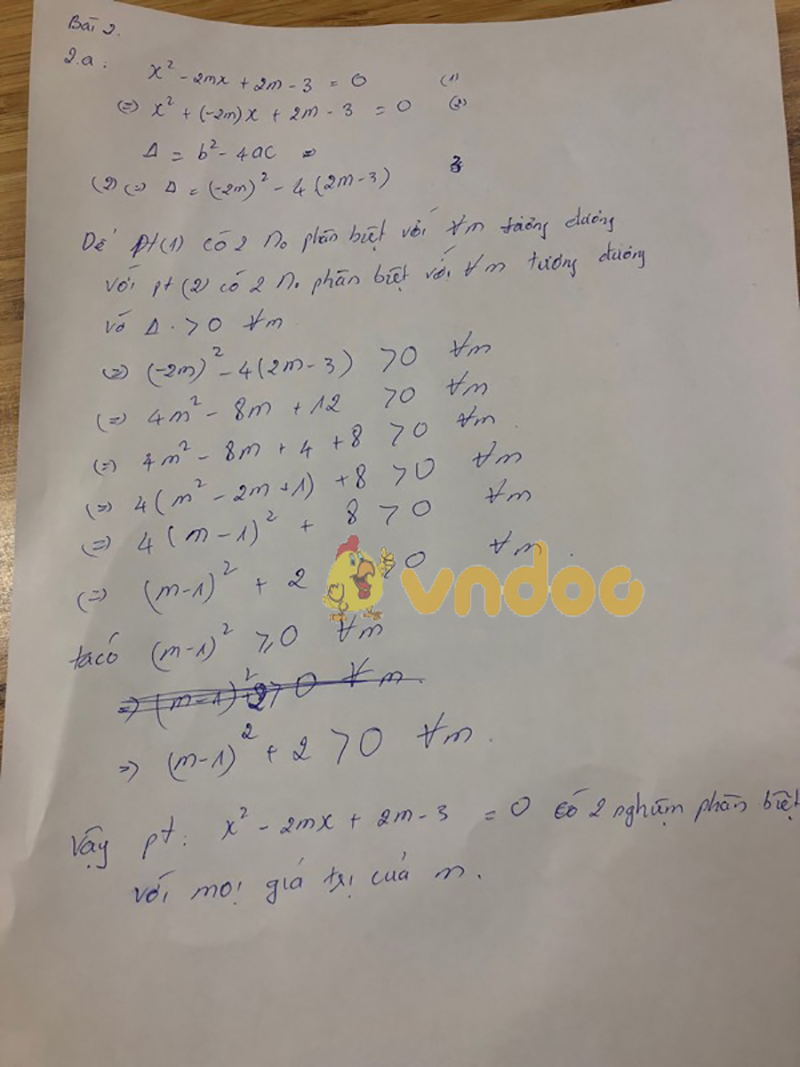 Bài 2.
2.a: x² - 2mx + 2m - 3 = 0 (1)
(=) x² + (-2m)x + 2m - 3 = 0 (2)
Δ = b² - 4ac =
(2) (=) Δ = (-2m)² - 4(2m-3)
Để pt(1) có 2 no phân biệt với ∀m tương đương
với pt(2) có 2 no phân biệt với ∀m tương đương
vó Δ > 0 ∀m
(=) (-2m)² - 4(2m-3) > 0 ∀m
(=) 4m² - 8m + 12 > 0 ∀m
(=) 4m² - 8m + 4 + 8 > 0 ∀m
(=) 4(m² - 2m + 1) + 8 > 0 ∀m
(=) 4(m-1)² + 8 > 0 ∀m
(=) (m-1)² + 2 > 0 ∀m.
vndoc
ta có (m-1)² ≥ 0 ∀m
=> (m-1)² + 2 > 0 ∀m.
=> (m-1)² + 2 > 0 ∀m.
Vậy pt: x² - 2mx + 2m - 3 = 0 có 2 nghiệm phân biệt
với mọi giá trị của m.